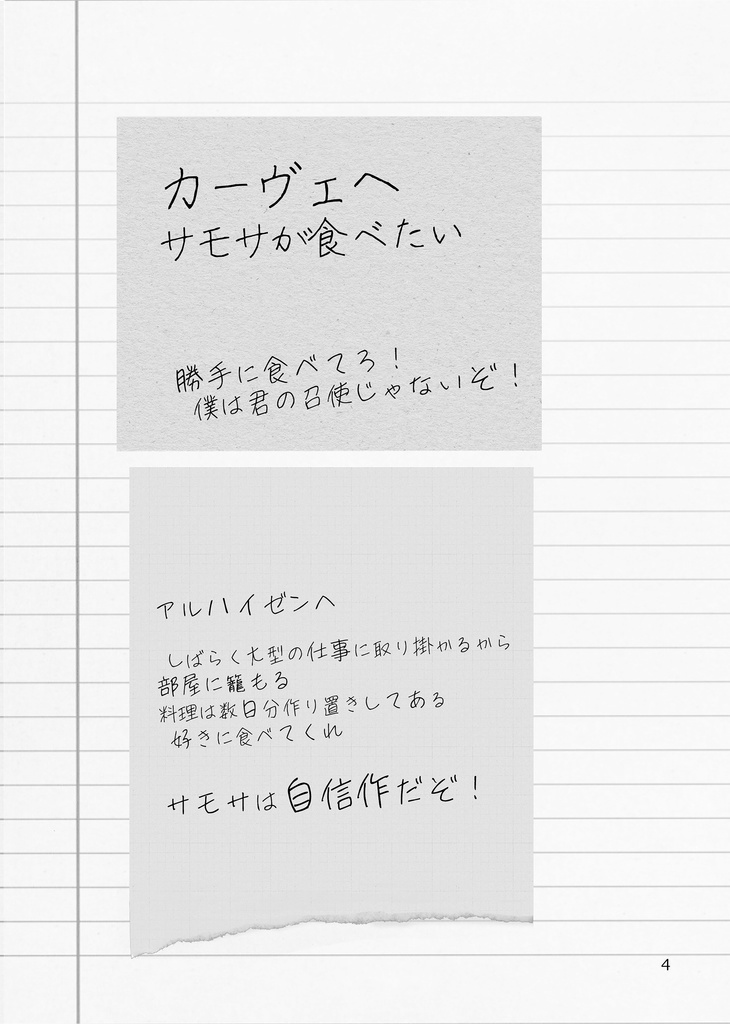 カーヴェへ
サモサが食べたい
勝手に食べてろ！
僕は君の召使じゃないぞ！
アルハイゼンへ
しばらく大型の仕事に取り掛かるから
部屋に籠もる
料理は数日分作り置きしてある
好きに食べてくれ
サモサは自信作だぞ！
4